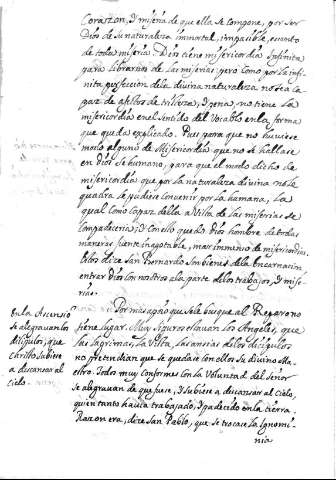 Corazon, y miseria de que ella se compone, por ser
Dios de su naturaleza immortal, impasible, exempto
de toda miseria. Dios tiene misericordia infinita
para librarnos de las miserias; pero como por la infi-
nita perfeccion de la divina naturaleza no sea ca-
paz de afectos de tristeza, y pena, no tiene la
misericordia en el sentido del vocablo en la forma
que queda explicado. Pues para que no huviese
modo alguno de Misericordia que no se hallase
en Dios se humano, para que el modo dicho de
misericordia que por la naturaleza divina no le
quadra le pudiese convenir por la humana, la
qual como capaz de la vista de las miserias se
compadeciria; y con esto quedo Dios hombre de todas
maneras fuente inagotable, mar immenso de misericordias.
Ellos dize San Bernardo son bienes de la Encarnacion
entrar Dios con nosotros a la parte de los trabajos, y mise-
rias.
En la Ascensio
se alegravan los
discipulos, que
Christo subiese
a descansar al
cielo.
Por mas que se le busque al Reparo no
tiene lugar. Muy seguros estavan los Angeles, que
las lagrimas, la vista, las ansias de los discipulos
no pretendian que se quedase con ellos su divino Ma-
estro. Todos muy conformes con la Voluntad del Señor
se alegravan de que fuese, y subiese a descansar al Cielo,
quien tanto havia trabajado, y padecido en la tierra.
Razon era, dize san Pablo, que se trocase la ignomi-
nia